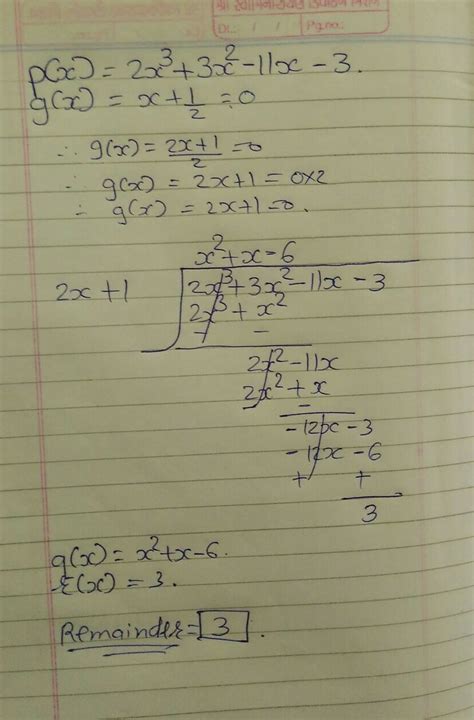 Dt.: / / Pg.no.:
p(x) = 2x³+3x²-11x-3.
g(x) = x+1/2 = 0
∴ g(x) = 2x+1/2 = 0
∴ g(x) = 2x+1 = 0×2
∴ g(x) = 2x+1=0.
x²+x-6
2x+1 2x³+3x²-11x-3
2x³+x²
- -
2x²-11x
2x²+x
- -
-12x-3
-12x-6
+ +
3
q(x) = x²+x-6.
r(x) = 3.
Remainder = 3.